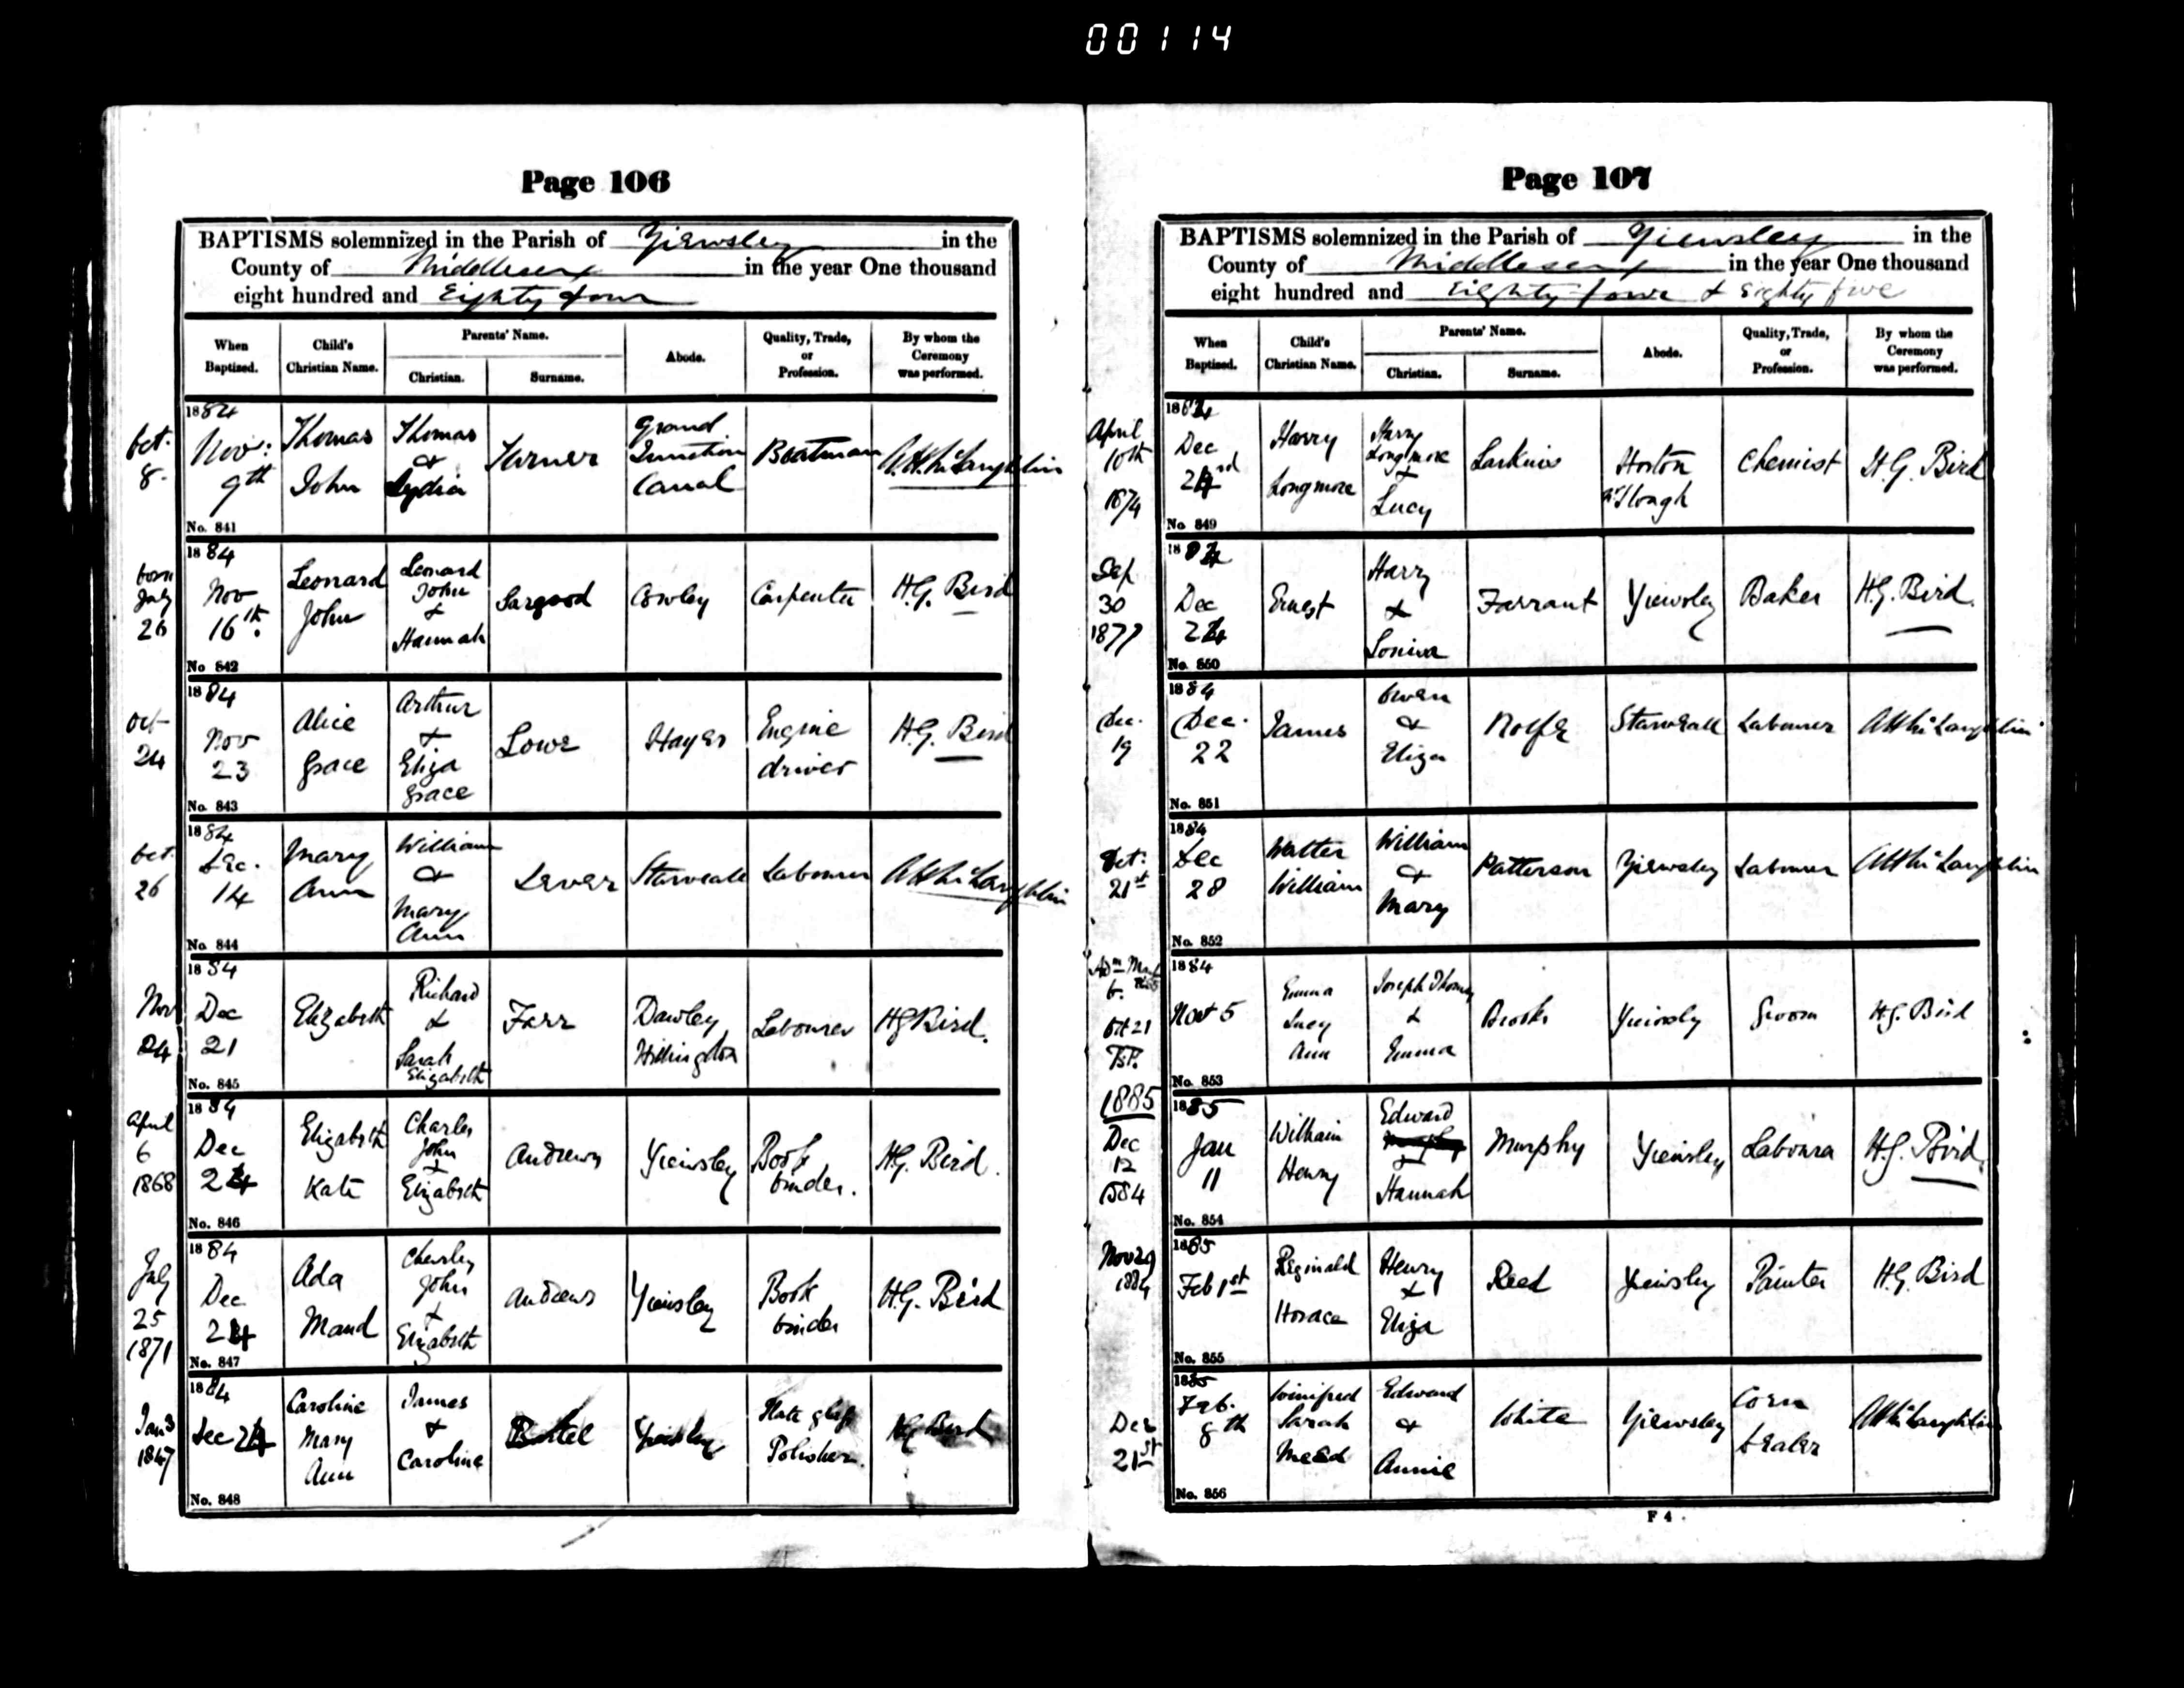 00114
Page 106
BAPTISMS solemnized in the Parish of Yiewsley in the
County of Middlesex in the year One thousand
eight hundred and Eighty four
When Baptized. Child's Christian Name. Parents' Name. Christian. Surname. Abode. Quality, Trade, or Profession. By whom the Ceremony was performed.
Oct. 8. 1884 Nov: 9th Thomas John Thomas & Lydia Turner Grand Junction Canal Boatman A.H. McLaughlin
No. 841
born July 26 1884 Nov 16th. Leonard John Leonard John & Hannah Sargood Cowley Carpenter H.G. Bird
No 842
Oct 24 1884 Nov 23 Alice Grace Arthur & Eliza Grace Lowe Hayes Engine driver H.G. Bird
No. 843
Oct. 26 1884 Dec. 14 Mary Ann William & Mary Ann Lever Starveall Labourer McLaughlin
No. 844
Nov 24 1884 Dec 21 Elizabeth Richard & Sarah Elizabeth Farr Dawley Hillingdon Labourer HG Bird.
No. 845
April 6 1868 1884 Dec 24 Elizabeth Kate Charles John & Elizabeth Andrews Yiewsley Book binder. H.G. Bird.
No. 846
July 25 1871 1884 Dec 24 Ada Maud Charles John & Elizabeth Andrews Yiewsley Book binder H.G. Bird
No. 847
Jan 3 1884 Dec 24 Caroline Mary Ann James & Caroline Yiewsley Plate glass Polisher. HG Bird
No. 848
Page 107
BAPTISMS solemnized in the Parish of Yiewsley in the
County of Middlesex in the year One thousand
eight hundred and Eighty four & Eighty five
When Baptized. Child's Christian Name. Parents' Name. Christian. Surname. Abode. Quality, Trade, or Profession. By whom the Ceremony was performed.
April 10th 1874 1884 Dec 24 Harry Longmore Harry Longmore & Lucy Larkins Horton nr Slough Chemist H.G. Bird
No 849
Sep 30 1877 1884 Dec 24 Ernest Harry & Farrant Yiewsley Baker H.G. Bird.
No. 850
Dec. 19 1884 Dec. 22 James Owen & Eliza Rolfe Starveall Labourer McLaughlin
No. 851
Oct: 21st 1884 Dec 28 Walter William William & Mary Patterson Yiewsley Labourer McLaughlin
No. 852
Oct 21 1884 5 Emma Lucy Ann Joseph Thomas & Emma Brooks Yiewsley Groom H.G. Bird
No. 853
1885
Dec 12 1884 1885 Jan 11 William Henry Edward & Hannah Murphy Yiewsley Labourer H.G. Bird.
No. 854
Nov 29 1884 1885 Feb 1st Reginald Horace Henry & Eliza Reed Yiewsley Painter H.G. Bird
No. 855
Dec 21st 1885 Feb. 8th Winifred Sarah Mead Edward & Annie White Yiewsley Corn Dealer McLaughlin
No. 856
F 4.